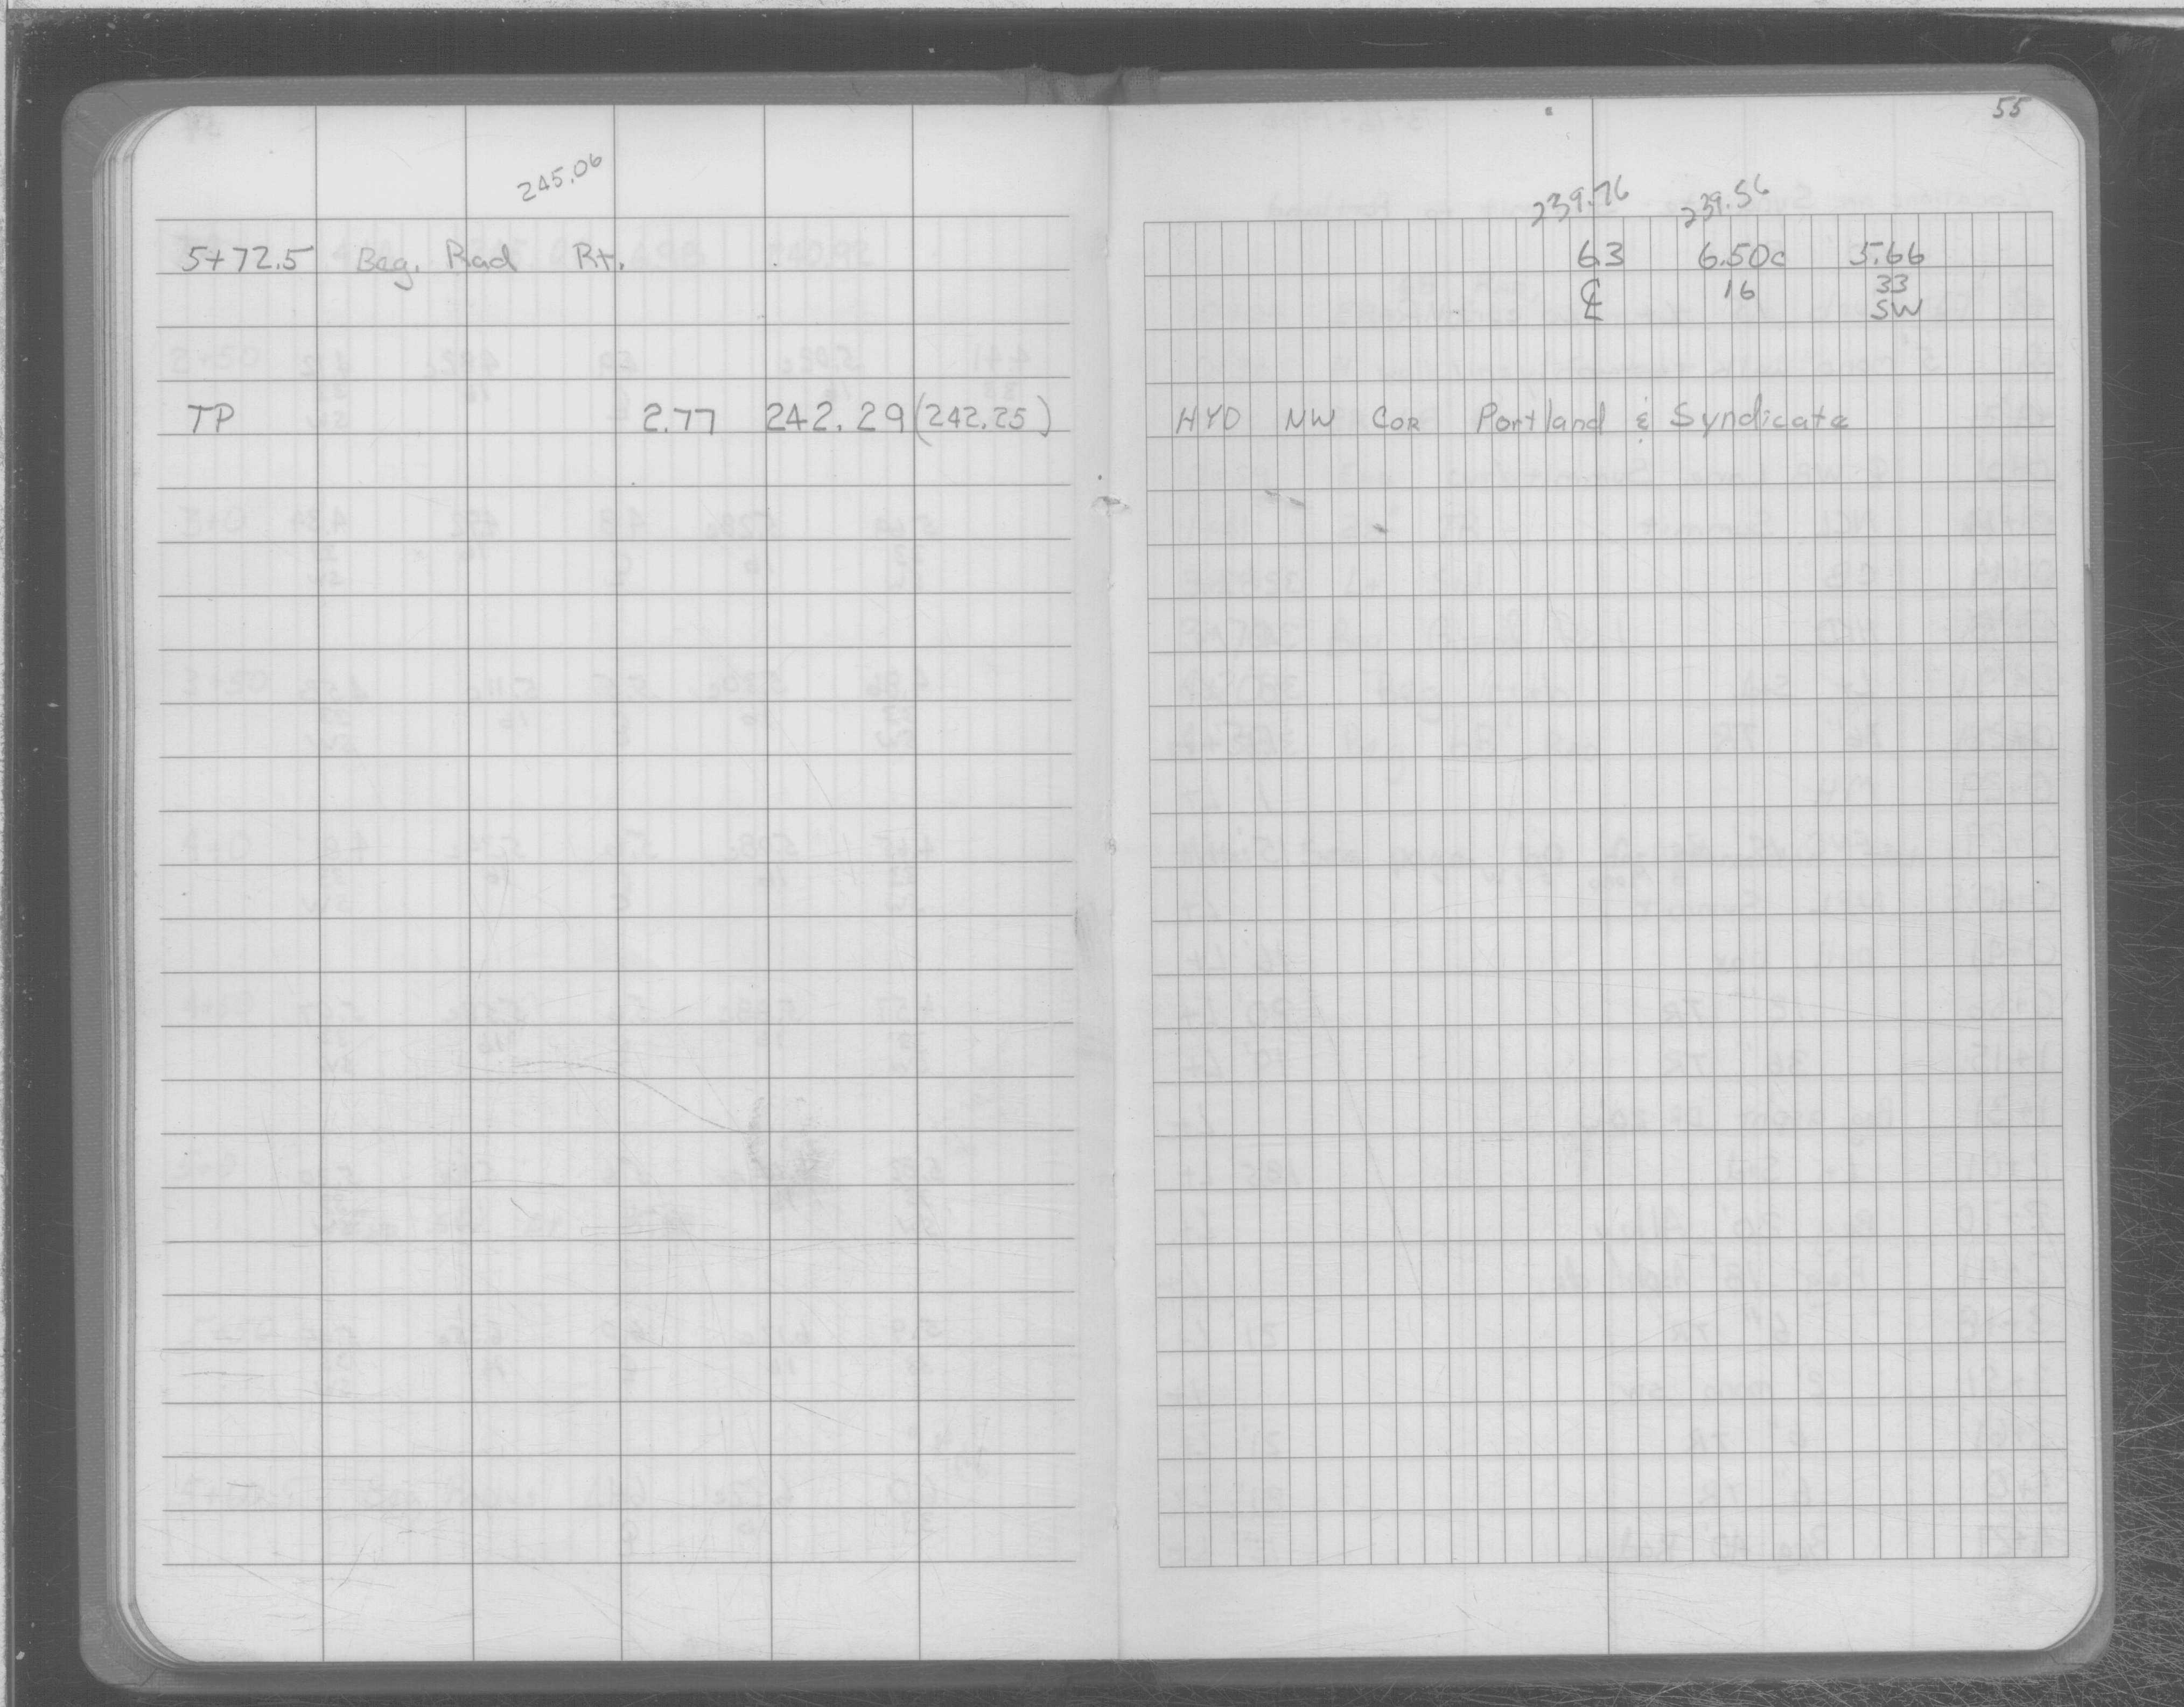 245.06
5+72.5 Beg. Rad Rt.
TP 2.77 242.29 (242.25)
55
239.76 239.56
6.3 6.50c 5.66
℄ 16 33
SW
HYD NW COR Portland & Syndicate